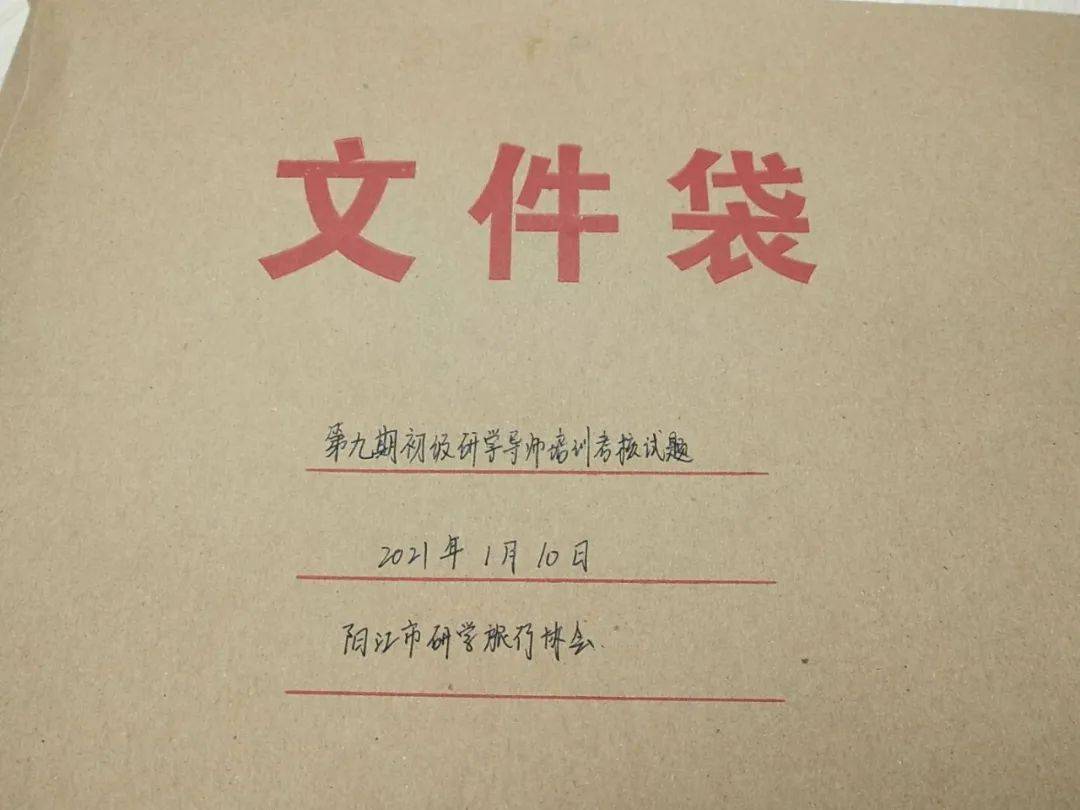 文件袋
第九期初级研学导师培训考核试题
2021年1月10日
阳江市研学旅行协会